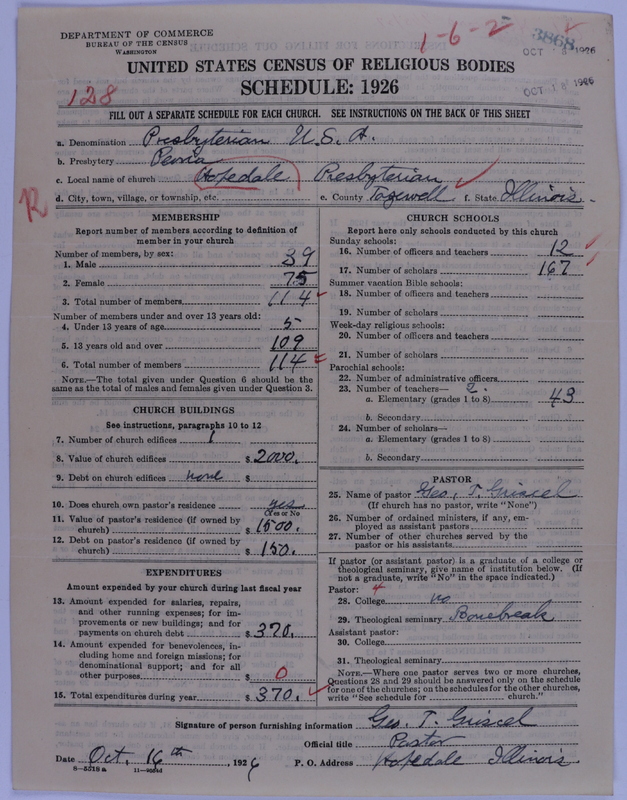 DEPARTMENT OF COMMERCE
BUREAU OF THE CENSUS
WASHINGTON
1-6-2
3868
OCT 18 1926
OCT 18 1926
UNITED STATES CENSUS OF RELIGIOUS BODIES
SCHEDULE: 1926
128
FILL OUT A SEPARATE SCHEDULE FOR EACH CHURCH. SEE INSTRUCTIONS ON THE BACK OF THIS SHEET
a. Denomination Presbyterian U.S.A.
b. Presbytery Peoria
c. Local name of church Hopedale Presbyterian
d. City, town, village, or township, etc. e. County Tazewell f. State Illinois
R
MEMBERSHIP
Report number of members according to definition of member in your church
Number of members, by sex:
1. Male 39
2. Female 75
3. Total number of members 114
Number of members under and over 13 years old:
4. Under 13 years of age 5
5. 13 years old and over 109
6. Total number of members 114
NOTE.—The total given under Question 6 should be
same as the total of males and females given under Question 3.
CHURCH BUILDINGS
See instructions, paragraphs 10 to 12
7. Number of church edifices 1
8. Value of church edifices $ 2000.
9. Debt on church edifices none $
10. Does church own pastor's residence yes
(Yes or No)
11. Value of pastor's residence (if owned by
church) $ 1500.
12. Debt on pastor's residence (if owned by
church) $ 150.
EXPENDITURES
Amount expended by your church during last fiscal year
13. Amount expended for salaries, repairs,
and other running expenses; for im-
provements or new buildings; and for
payments on church debt $ 370.
14. Amount expended for benevolences, in-
cluding home and foreign missions; for
denominational support; and for all
other purposes $ 0
15. Total expenditures during year $ 370.
CHURCH SCHOOLS
Report here only schools conducted by this church
Sunday schools:
16. Number of officers and teachers 12
17. Number of scholars 167
Summer vacation Bible schools:
18. Number of officers and teachers
19. Number of scholars
Week-day religious schools:
20. Number of officers and teachers
21. Number of scholars
Parochial schools:
22. Number of administrative officers
23. Number of teachers— 2.
a. Elementary (grades 1 to 8) 43
b. Secondary
24. Number of scholars—
a. Elementary (grades 1 to 8)
b. Secondary
PASTOR
25. Name of pastor Geo. T. Griscel
(If church has no pastor, write "None")
26. Number of ordained ministers, if any, em-
ployed as assistant pastors
27. Number of other churches served by the
pastor or his assistants
If pastor (or assistant pastor) is a graduate of a college or
theological seminary, give name of institution below. (If
not a graduate, write "No" in the space indicated.)
Pastor: 4
28. College no
29. Theological seminary Bonebreak
Assistant pastor:
30. College
31. Theological seminary
NOTE.—Where one pastor serves two or more churches,
Questions 28 and 29 should be answered only on the schedule
for one of the churches; on the schedules for the other churches,
write "See schedule for church."
Signature of person furnishing information Geo. T. Griscel
Official title Pastor
Date Oct. 16th, 1926 P. O. Address Hopedale Illinois
8—5518 a